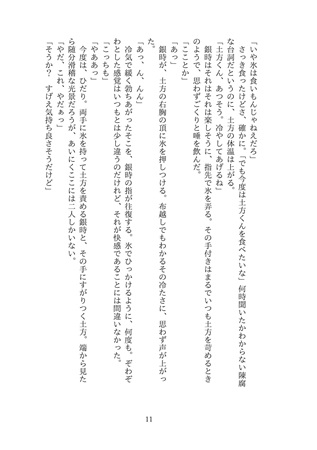 「いや氷は食いもんじゃねえだろ」
さっき食ったけどさ、確かに。「でも今度は土方くんを食べたいな」何時聞いたかわからない陳腐
な台詞だというのに、土方の体温は上がる。
「土方くん、あっそう。冷やしてあげるね」
銀時はそれはそれは楽しそうに、指先で氷を弄る。その手付きはまるでいつも土方を苛めるとき
のようで、思わずごくりと唾を飲んだ。
「こことか」
「あっ」
銀時が、土方の右胸の頂に氷を押しつける。布越しでもわかるその冷たさに、思わず声が上がっ
た。
「あっ、ん、んんっ」
冷気で緩く勃ちあがったそこを、銀時の指が往復する。氷でひっかけるように、何度も。ぞわぞ
わとした感覚はいつもとは少し違うのだけれど、それが快感であることには間違いなかった。
「こっちも」
「やああっ」
今度は、ひだり。両手に氷を持って土方を責める銀時と、その手にすがりつく土方。端から見た
ら随分滑稽な光景だろうが、あいにくここには二人しかいない。
「やだ、これ、やだぁっ」
「そうか？　すげえ気持ち良さそうだけど」
11